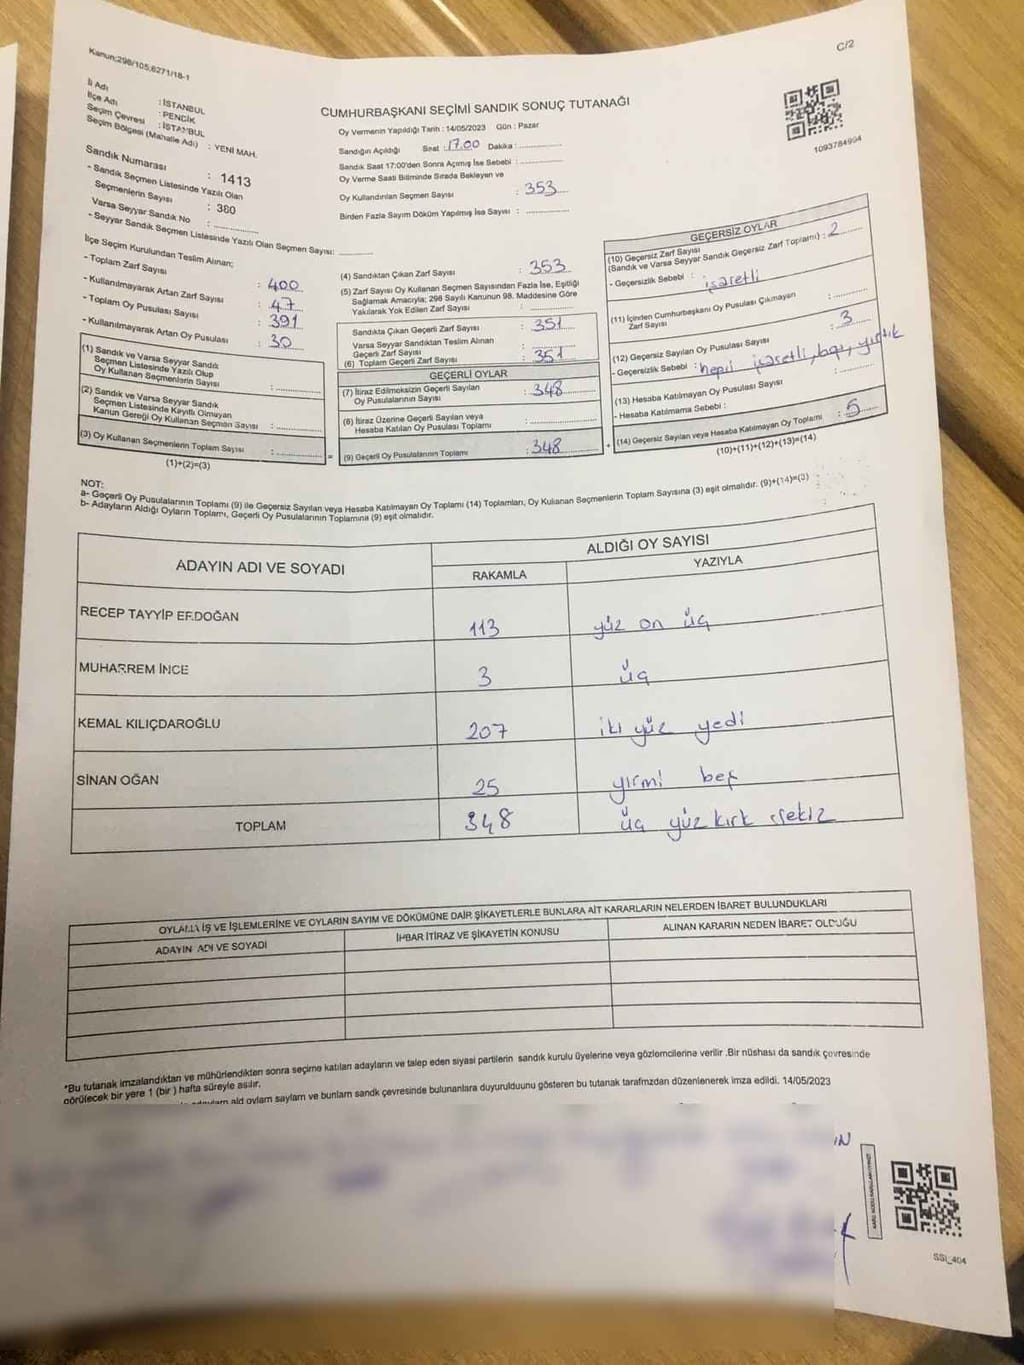 Kanun;298/105,6271/18-1
C/2
İl Adı : İSTANBUL
İlçe Adı : PENDİK
Seçim Çevresi : İSTANBUL
Seçim Bölgesi (Mahalle Adı) : YENİ MAH.
Sandık Numarası : 1413
- Sandık Seçmen Listesinde Yazılı Olan
Seçmenlerin Sayısı : 380
Varsa Seyyar Sandık No :
- Seyyar Sandık Seçmen Listesinde Yazılı Olan Seçmen Sayısı:
CUMHURBAŞKANI SEÇİMİ SANDIK SONUÇ TUTANAĞI
Oy Vermenin Yapıldığı Tarih : 14/05/2023 Gün : Pazar
Sandığın Açıldığı Saat : 17.00 Dakika :
Sandık Saat 17:00'den Sonra Açılmış İse Sebebi :
Oy Verme Saati Bitiminde Sırada Bekleyen ve
Oy Kullandırılan Seçmen Sayısı : 353
Birden Fazla Sayım Döküm Yapılmış İse Sayısı :
1093784994
İlçe Seçim Kurulundan Teslim Alınan;
- Toplam Zarf Sayısı : 400
- Kullanılmayarak Artan Zarf Sayısı : 47
- Toplam Oy Pusulası Sayısı : 391
- Kullanılmayarak Artan Oy Pusulası : 30
(1) Sandık ve Varsa Seyyar Sandık
Seçmen Listesinde Yazılı Olup
Oy Kullanan Seçmenlerin Sayısı :
(2) Sandık ve Varsa Seyyar Sandık
Seçmen Listesinde Kayıtlı Olmayan
Kanun Gereği Oy Kullanan Seçmen Sayısı :
(3) Oy Kullanan Seçmenlerin Toplam Sayısı :
(1)+(2)=(3)
=
(4) Sandıktan Çıkan Zarf Sayısı : 353
(5) Zarf Sayısı Oy Kullanan Seçmen Sayısından Fazla İse, Eşitliği
Sağlamak Amacıyla; 298 Sayılı Kanunun 98. Maddesine Göre
Yakılarak Yok Edilen Zarf Sayısı :
Sandıkta Çıkan Geçerli Zarf Sayısı : 351
Varsa Seyyar Sandıktan Teslim Alınan
Geçerli Zarf Sayısı :
(6) Toplam Geçerli Zarf Sayısı : 351
GEÇERLİ OYLAR
(7) İtiraz Edilmeksizin Geçerli Sayılan
Oy Pusulasının Sayısı : 348
(8) İtiraz Üzerine Geçerli Sayılan veya
Hesaba Katılan Oy Pusulası Toplamı :
(9) Geçerli Oy Pusulalarının Toplamı : 348
+
GEÇERSİZ OYLAR
(10) Geçersiz Zarf Sayısı
(Sandık ve Varsa Seyyar Sandık Geçersiz Zarf Toplamı) : 2
- Geçersizlik Sebebi : işaretli
(11) İçinden Cumhurbaşkanı Oy Pusulası Çıkmayan
Zarf Sayısı :
(12) Geçersiz Sayılan Oy Pusulası Sayısı : 3
- Geçersizlik Sebebi : hepsi işaretli, boş, yırtık
(13) Hesaba Katılmayan Oy Pusulası Sayısı :
- Hesaba Katılmama Sebebi :
(14) Geçersiz Sayılan veya Hesaba Katılmayan Oy Toplamı : 5
(10)+(11)+(12)+(13)=(14)
NOT:
a- Geçerli Oy Pusulalarının Toplamı (9) ile Geçersiz Sayılan veya Hesaba Katılmayan Oy Toplamı (14) Toplamları, Oy Kullanan Seçmenlerin Toplam Sayısına (3) eşit olmalıdır. (9)+(14)=(3)
b- Adayların Aldığı Oyların Toplamı, Geçerli Oy Pusulalarının Toplamına (9) eşit olmalıdır.
ADAYIN ADI VE SOYADI
ALDIĞI OY SAYISI
RAKAMLA YAZIYLA
RECEP TAYYİP ERDOĞAN 113 yüz on üç
MUHARREM İNCE 3 üç
KEMAL KILIÇDAROĞLU 207 iki yüz yedi
SİNAN OĞAN 25 yirmi beş
TOPLAM 348 üç yüz kırk sekiz
OYLAMA İŞ VE İŞLEMLERİNE VE OYLARIN SAYIM VE DÖKÜMÜNE DAİR ŞİKAYETLERLE BUNLARA AİT KARARLARIN NELERDEN İBARET BULUNDUKLARI
ADAYIN ADI VE SOYADI İHBAR İTİRAZ VE ŞİKAYETİN KONUSU ALINAN KARARIN NEDEN İBARET OLDUĞU
*Bu tutanak imzalandıktan ve mühürlendikten sonra seçime katılan adayların ve talep eden siyasi partilerin sandık kurulu üyelerine veya gözlemcilerine verilir .Bir nüshası da sandık çevresinde
görülecek bir yere 1 (bir ) hafta süreyle asılır.
ald oylam saylam ve bunlam sandk çevresinde bulunanlara duyurulduunu gösteren bu tutanak tarafmzdan düzenlenerek imza edildi. 14/05/2023
SSI_404